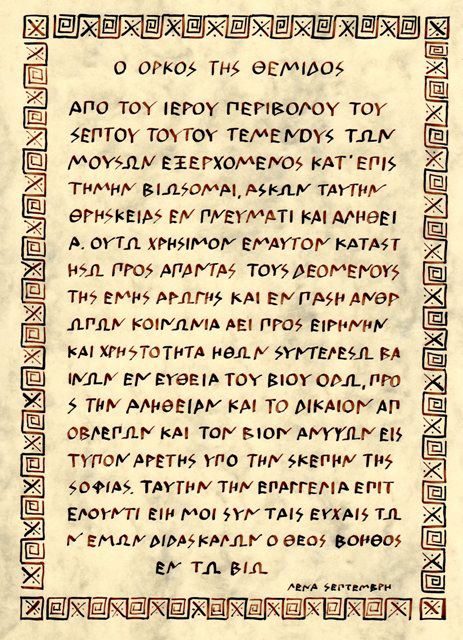 Ο ΟΡΚΟΣ ΤΗΣ ΘΕΜΙΔΟΣ
ΑΠΟ ΤΟΥ ΙΕΡΟΥ ΠΕΡΙΒΟΛΟΥ ΤΟΥ
ΣΕΠΤΟΥ ΤΟΥΤΟΥ ΤΕΜΕΝΟΥΣ ΤΩΝ
ΜΟΥΣΩΝ ΕΞΕΡΧΟΜΕΝΟΣ ΚΑΤ'ΕΠΙΣ
ΤΗΜΗΝ ΒΙΩΣΟΜΑΙ, ΑΣΚΩΝ ΤΑΥΤΗΝ
ΘΡΗΣΚΕΙΑΣ ΕΝ ΠΝΕΥΜΑΤΙ ΚΑΙ ΑΛΗΘΕΙ
Α. ΟΥΤΩ ΧΡΗΣΙΜΟΝ ΕΜΑΥΤΟΝ ΚΑΤΑΣΤ
ΗΣΩ ΠΡΟΣ ΑΠΑΝΤΑΣ ΤΟΥΣ ΔΕΟΜΕΝΟΥΣ
ΤΗΣ ΕΜΗΣ ΑΡΩΓΗΣ ΚΑΙ ΕΝ ΠΑΣΗ ΑΝΘΡ
ΩΠΩΝ ΚΟΙΝΩΝΙΑ ΑΕΙ ΠΡΟΣ ΕΙΡΗΝΗΝ
ΚΑΙ ΧΡΗΣΤΟΤΗΤΑ ΗΘΩΝ ΣΥΝΤΕΛΕΣΩ ΒΑ
ΙΝΩΝ ΕΝ ΕΥΘΕΙΑ ΤΟΥ ΒΙΟΥ ΟΔΩ, ΠΡΟ
Σ ΤΗΝ ΑΛΗΘΕΙΑΝ ΚΑΙ ΤΟ ΔΙΚΑΙΟΝ ΑΠ
ΟΒΛΕΠΩΝ ΚΑΙ ΤΟΝ ΒΙΟΝ ΑΝΥΨΩΝ ΕΙΣ
ΤΥΠΟΝ ΑΡΕΤΗΣ ΥΠΟ ΤΗΝ ΣΚΕΠΗΝ ΤΗΣ
ΣΟΦΙΑΣ. ΤΑΥΤΗΝ ΤΗΝ ΕΠΑΓΓΕΛΙΑ ΕΠΙΤ
ΕΛΟΥΝΤΙ ΕΙΗ ΜΟΙ ΣΥΝ ΤΑΙΣ ΕΥΧΑΙΣ ΤΩ
Ν ΕΜΩΝ ΔΙΔΑΣΚΑΛΩΝ Ο ΘΕΟΣ ΒΟΗΘΟΣ
ΕΝ ΤΩ ΒΙΩ
ΛΕΝΑ ΣΕΠΤΕΜΒΡΗ